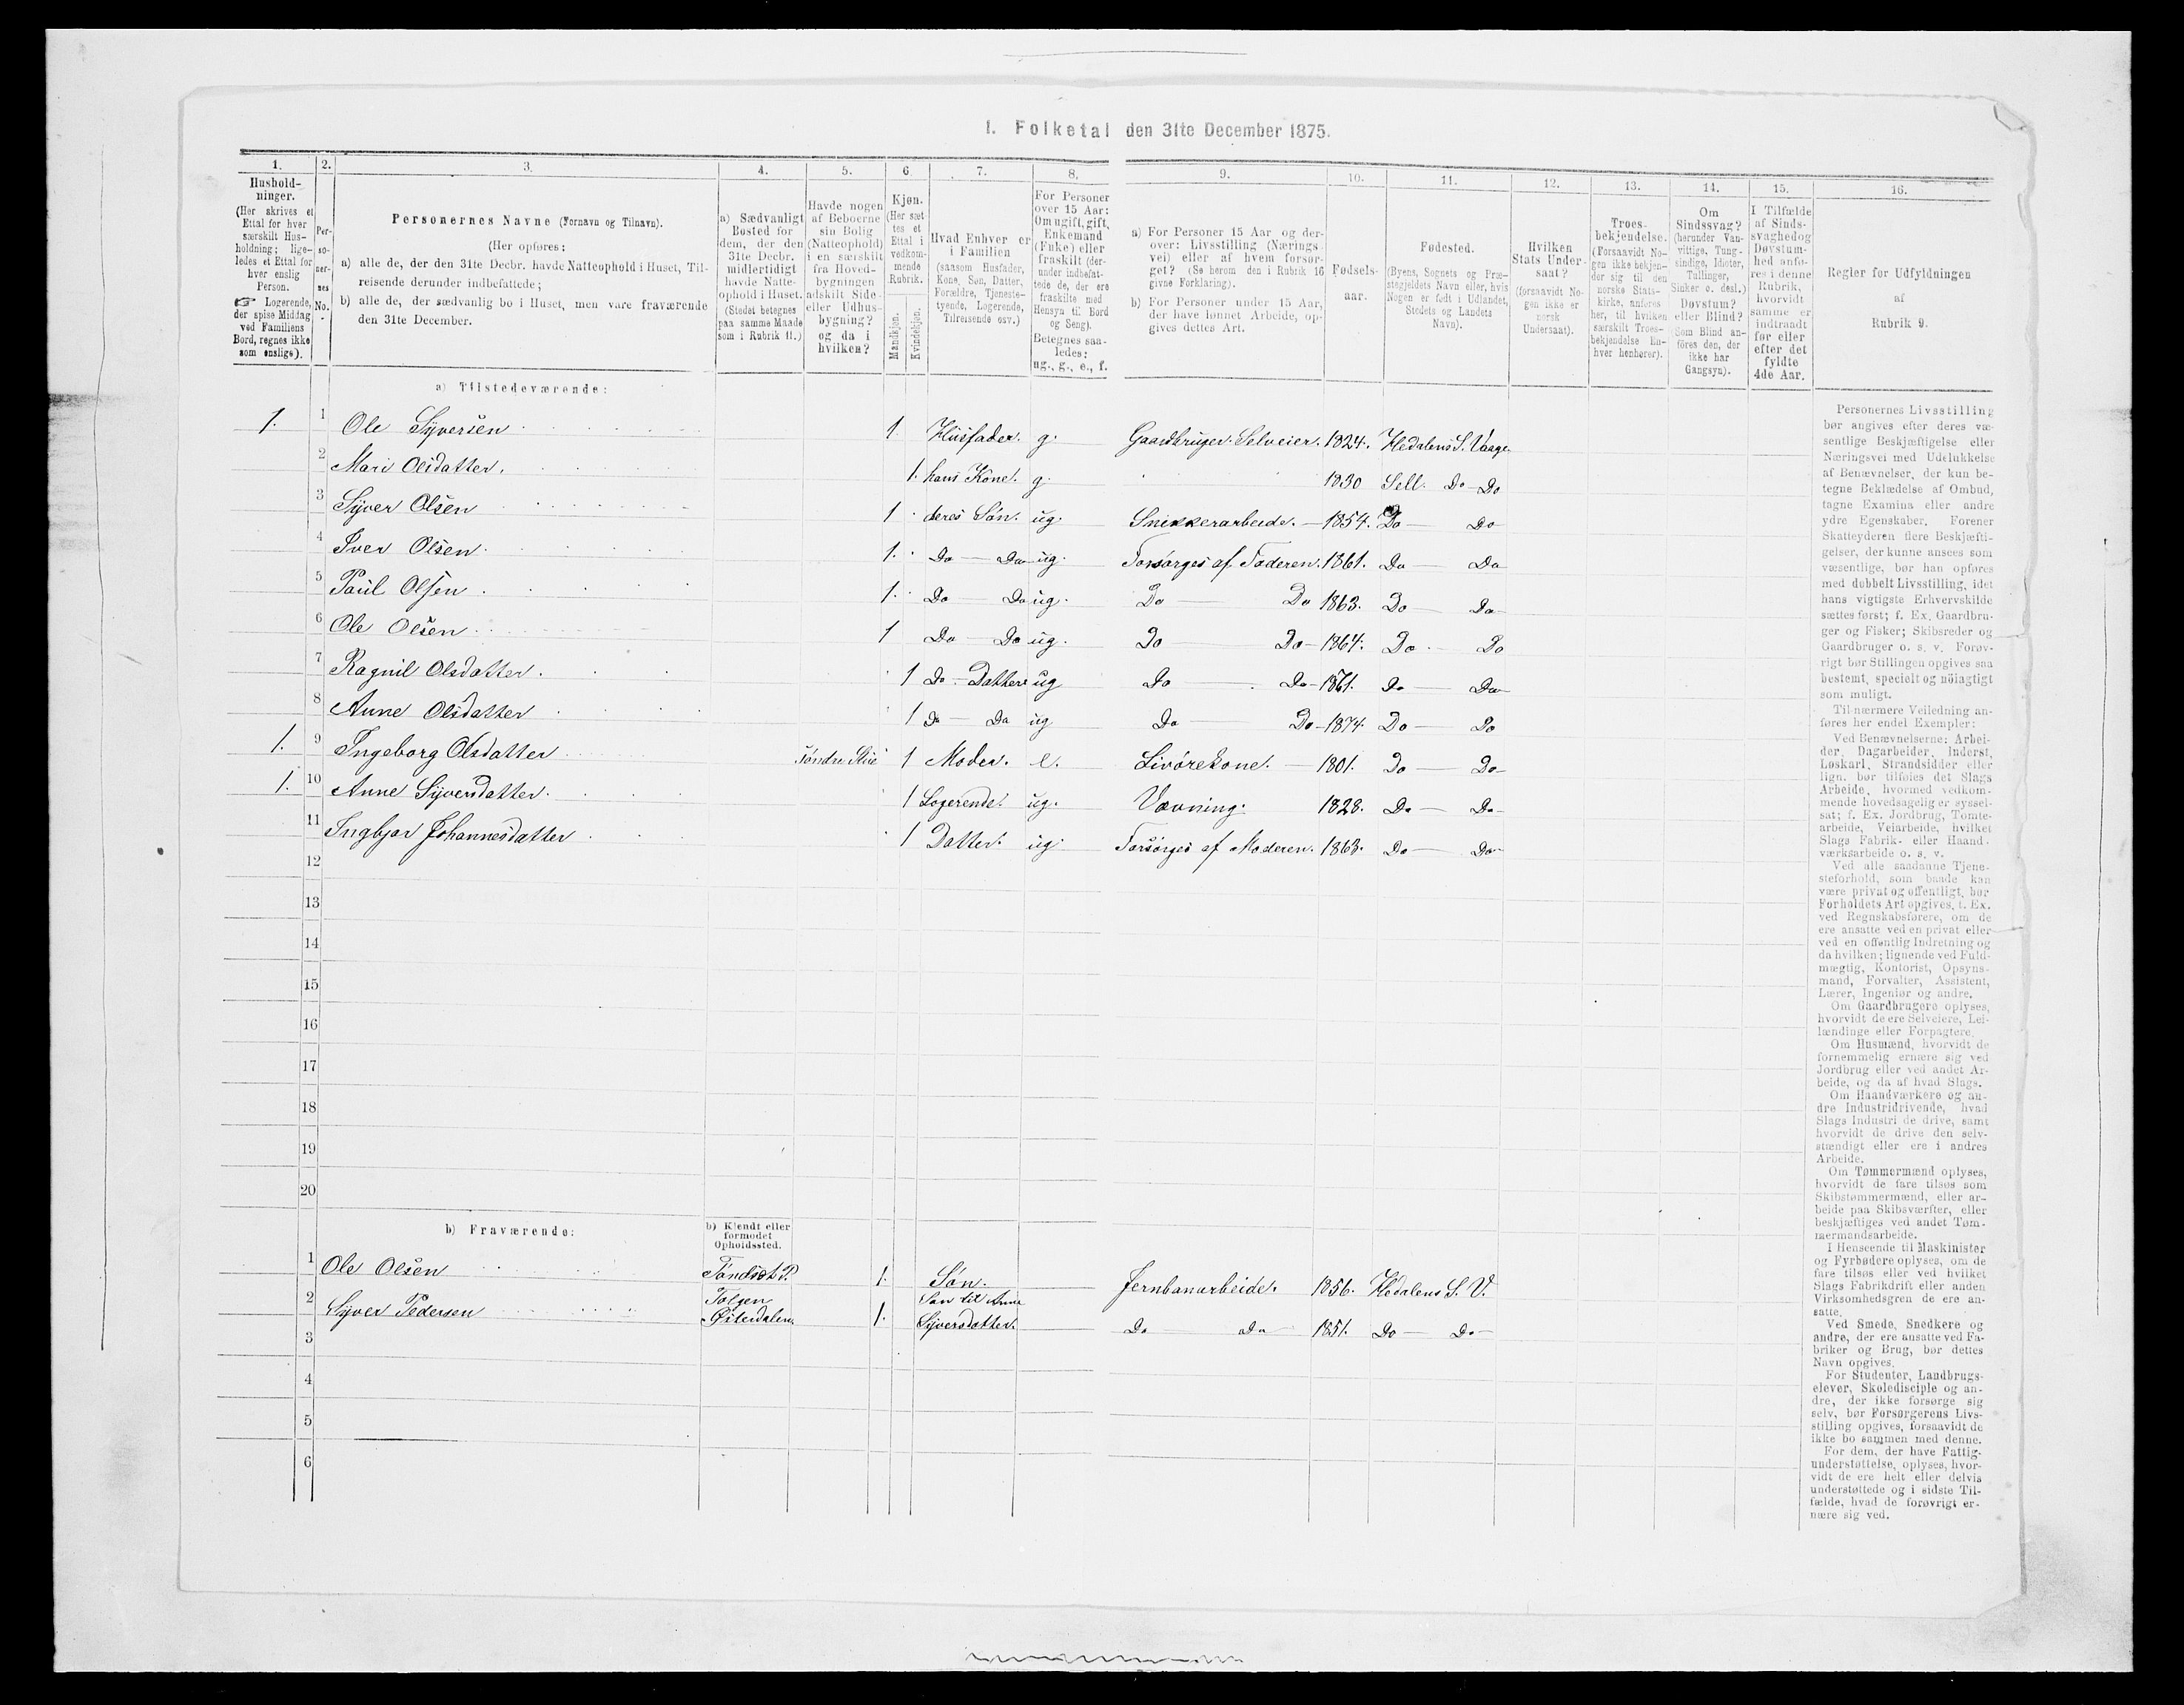 1. Folketal den 31te December 1875.
1. 2. 3. 4. 5. 6. 7. 8. 9. 10. 11. 12. 13. 14. 15. 16.
Hushold-
ninger.
(Her skrives et
Ettal for hver
særskilt Hus-
holdning; lige-
ledes et Ettal for
hver enslig
Person.
☞ Logerende,
der spise Middag
ved Familiens
Bord, regnes ikke
som enslige).
Per-
so-
ner-
nes
No.
Personernes Navne (Fornavn og Tilnavn).
(Her opføres:
a) alle de, der den 31te Decbr. havde Natteophold i Huset, Til-
reisende derunder indbefattede;
b) alle de, der sædvanlig bo i Huset, men vare fraværende
den 31te December.
a) Sædvanligt
Bosted for
dem, der den
31te Decbr.
midlertidigt
havde Natte-
ophold i Huset.
(Stedet betegnes
paa samme Maade
som i Rubrik 11.)
Havde nogen
af Beboerne
sin Bolig
(Natteophold)
i en særskilt
fra Hoved-
bygningen
adskilt Side-
eller Udhus-
bygning?
og da i
hvilken?
Kjøn.
(Her sæt-
tes et
Ettal i
vedkom-
mende
Rubrik.
Mandkjøn.
Kvindekjøn.
Hvad Enhver er
i Familien
(saasom Husfader,
Kone, Søn, Datter,
Forældre, Tjeneste-
tyende, Logerende,
Tilreisende osv.)
For Personer
over 15 Aar:
Om ugift, gift,
Enkemand
(Enke) eller
fraskilt (der-
under indbefat-
tede de, der ere
fraskilte med
Hensyn til Bord
og Seng).
Betegnes saa-
ledes:
ug., g., e., f.
a) For Personer 15 Aar og der-
over: Livsstilling (Nærings-
vei) eller af hvem forsør-
get? (Se herom den i Rubrik 16
givne Forklaring).
b) For Personer under 15 Aar,
der have lønnet Arbeide, op-
gives dettes Art.
Fødsels-
aar.
Fødested.
(Byens, Sognets og Præ-
stegjeldets Navn eller, hvis
Nogen er født i Udlandet,
Stedets og Landets
Navn).
Hvilken
Stats Under-
saat?
(forsaavidt No-
gen ikke er
norsk
Undersaat).
Troes-
bekjendelse.
(Forsaavidt No-
gen ikke bekjen-
der sig til den
norske Stats-
kirke, anføres
her, til hvilken
særskilt Troes-
bekjendelse En-
hver henhører).
Om
Sindssvag?
(herunder Van-
vittige, Tung-
sindige, Idioter,
Tullinger,
Sinker o. desl.)
Døvstum?
eller Blind?
Som Blind an-
føres den, der
ikke har
Gangsyn).
I Tilfælde
af Sinds-
svaghed og
Døvstum-
hed anfø-
res i denne
Rubrik,
hvorvidt
samme er
indtraadt
før eller
efter det
fyldte
4de Aar.
Regler for Udfyldningen
af
Rubrik 9.
a) Tilstedeværende:
1. 1 Ole Syversen 1. Husfader. g. Gaardbruger. Selveier. 1824. Hedalens S. Vaage
2 Mari Olsdatter. 1. hans Kone. g. 1830 Sell. Do - Do
3 Syver Olsen 1 deres Søn. ug. Snikkerarbeide. 1854. Do Do
4 Iver Olsen 1. Do Do ug. Forsørges af Faderen. 1861. Do Do
5 Paul Olsen 1. Do Do ug. Do Do 1863. Do Do
6 Ole Olsen 1 Do Do ug. Do Do 1864. Do Do
7 Ragnil Olsdatter. 1 Do Datter ug Do Do 1861. Do Do
8 Anne Olsdatter 1 Do Do ug Do Do 1874. Do Do
1. 9 Ingeborg Olsdatter Søndre Stue 1 Moder. e. Livørekone. 1801. Do Do
1. 10 Anne Syversdatter. 1 Logerende. ug. Vævning. 1828. Do Do
11 Ingbjør Johannesdatter 1 Datter. ug. Forsørges af Moderen. 1863. Do Do
12
13
14
15
16
17
18
19
20
b) Fraværende:
b) Kjendt eller
formodet
Opholdssted.
1 Ole Olsen Tøndset P. 1. Søn. Jernbanarbeide. 1856. Hedalens S. V.
2 Syver Pedersen Tolgen Østerdalen. 1. Søn til Anne Syversdatter. Do Do 1851. Do Do
3
4
5
6
Personernes Livsstilling
bør angives efter deres væ-
sentlige Beskjæftigelse eller
Næringsvei med Udelukkelse
af Benævnelser, der kun be-
tegne Beklædelse af Ombud,
tagne Examina eller andre
ydre Egenskaber. Forener
Skatteyderen flere Beskjæfti-
gelser, der kunne ansees som
væsentlige, bør han opføres
med dobbelt Livsstilling, idet
hans vigtigste Erhvervskilde
sættes først; f. Ex. Gaardbru-
ger og Fisker; Skibsreder og
Gaardbruger o. s. v. Forøv-
rigt bør Stillingen opgives saa
bestemt, specielt og nöiagtigt
som muligt.
Til nærmere Veiledning an-
føres her endel Exempler:
Ved Benævnelserne: Arbei-
der, Dagarbeider, Inderst,
Løskarl, Strandsidder eller
lign. bør tilføies det Slags
Arbeide, hvormed vedkom-
mende hovedsagelig er syssel-
sat; f. Ex. Jordbrug, Tomte-
arbeide, Veiarbeide, hvilket
Slags Fabrik- eller Haand-
værksarbeide o. s. v.
Ved alle saadanne Tjene-
steforhold, som baade kan
være privat og offentligt, bør
Forholdets Art opgives, t. Ex.
ved Regnskabsførere, om de
ere ansatte ved en privat eller
ved en offentlig Indretning og
da hvilken; lignende ved Fuld-
mægtig, Kontorist, Opsyns-
mand, Forvalter, Assistent,
Lærer, Ingeniør og andre.
Om Gaardbrugere oplyses,
hvorvidt de ere Selveiere, Lei-
lændinge eller Forpagtere.
Om Husmænd, hvorvidt de
fornemmelig ernære sig ved
Jordbrug eller ved andet Ar-
beide, og da af hvad Slags.
Om Haandværkere og an-
dre Industridrivende, hvad
Slags Industri de drive, samt
hvorvidt de drive den selv-
stændigt eller ere i andres
Arbeide.
Om Tømmermænd oplyses,
hvorvidt de fare tilsøs som
Skibstømmermænd, eller ar-
beide paa Skibsværfter, eller
beskjæftiges ved andet Tøm-
mermandsarbeide.
I Henseende til Maskinister
og Fyrbødere oplyses, om de
fare tilsøs eller ved hvilket
Slags Fabrikdrift eller anden
Virksomhedsgren de ere an-
satte.
Ved Smede, Snedkere og
andre, der ere ansatte ved Fa-
briker og Brug, bør dettes
Navn opgives.
For Studenter, Landbrugs-
elever, Skoledisciple og an-
dre, der ikke forsørge sig
selv, bør Forsørgerens Livs-
stilling opgives, forsaavidt de
ikke bo sammen med denne.
For dem, der have Fattig-
understøttelse, oplyses, hvor-
vidt de ere helt eller delvis
understøttede og i sidste Til-
fælde, hvad de forøvrigt er-
nære sig ved.